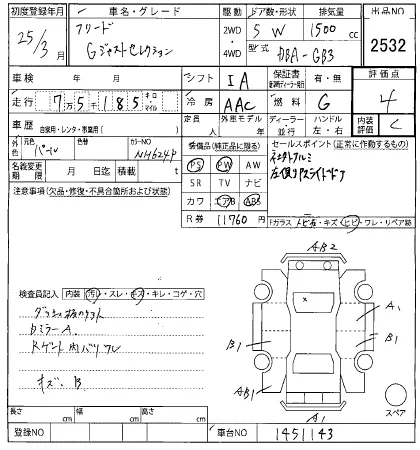 初度登録年月 車名・グレード 駆動 ドア数・形状 排気量 出品NO
25/3月 フリード Gジャストセレクション 2WD・4WD 5 W 1500 cc 2532
型式 DBA-GB3
車検 年 月 シフト IA 保証書 有・無 評価点
走行 7万5千185 キロ・マイル 冷房 AAC 燃料 G 4
車歴 自家用・レンタ・事業用( ) 定員 人 外車モデル 年 ディーラー・並行 ハンドル 左・右 内装評価 C
色 元色 パール 色替 カラーNO NH624P 装備品(純正品に限る) セールスポイント(正常に作動するもの)
名義変更期限 月 日迄 積載 t PS PW AW
注意事項(欠品・修復・不具合箇所および状態) SR TV ナビ
カワ エアB ABS
R券 11760円 Fガラス トビ石・キズ・ヒビ・ワレ・リペア跡
AB2
検査員記入 内装 汚・スレ・キズ・キレ・コゲ・穴
A1
ミラーA.
B1 B1
キズ. B
AB1
長さ cm 幅 cm 高さ cm A1 スペア
登録NO 車台NO 1451143